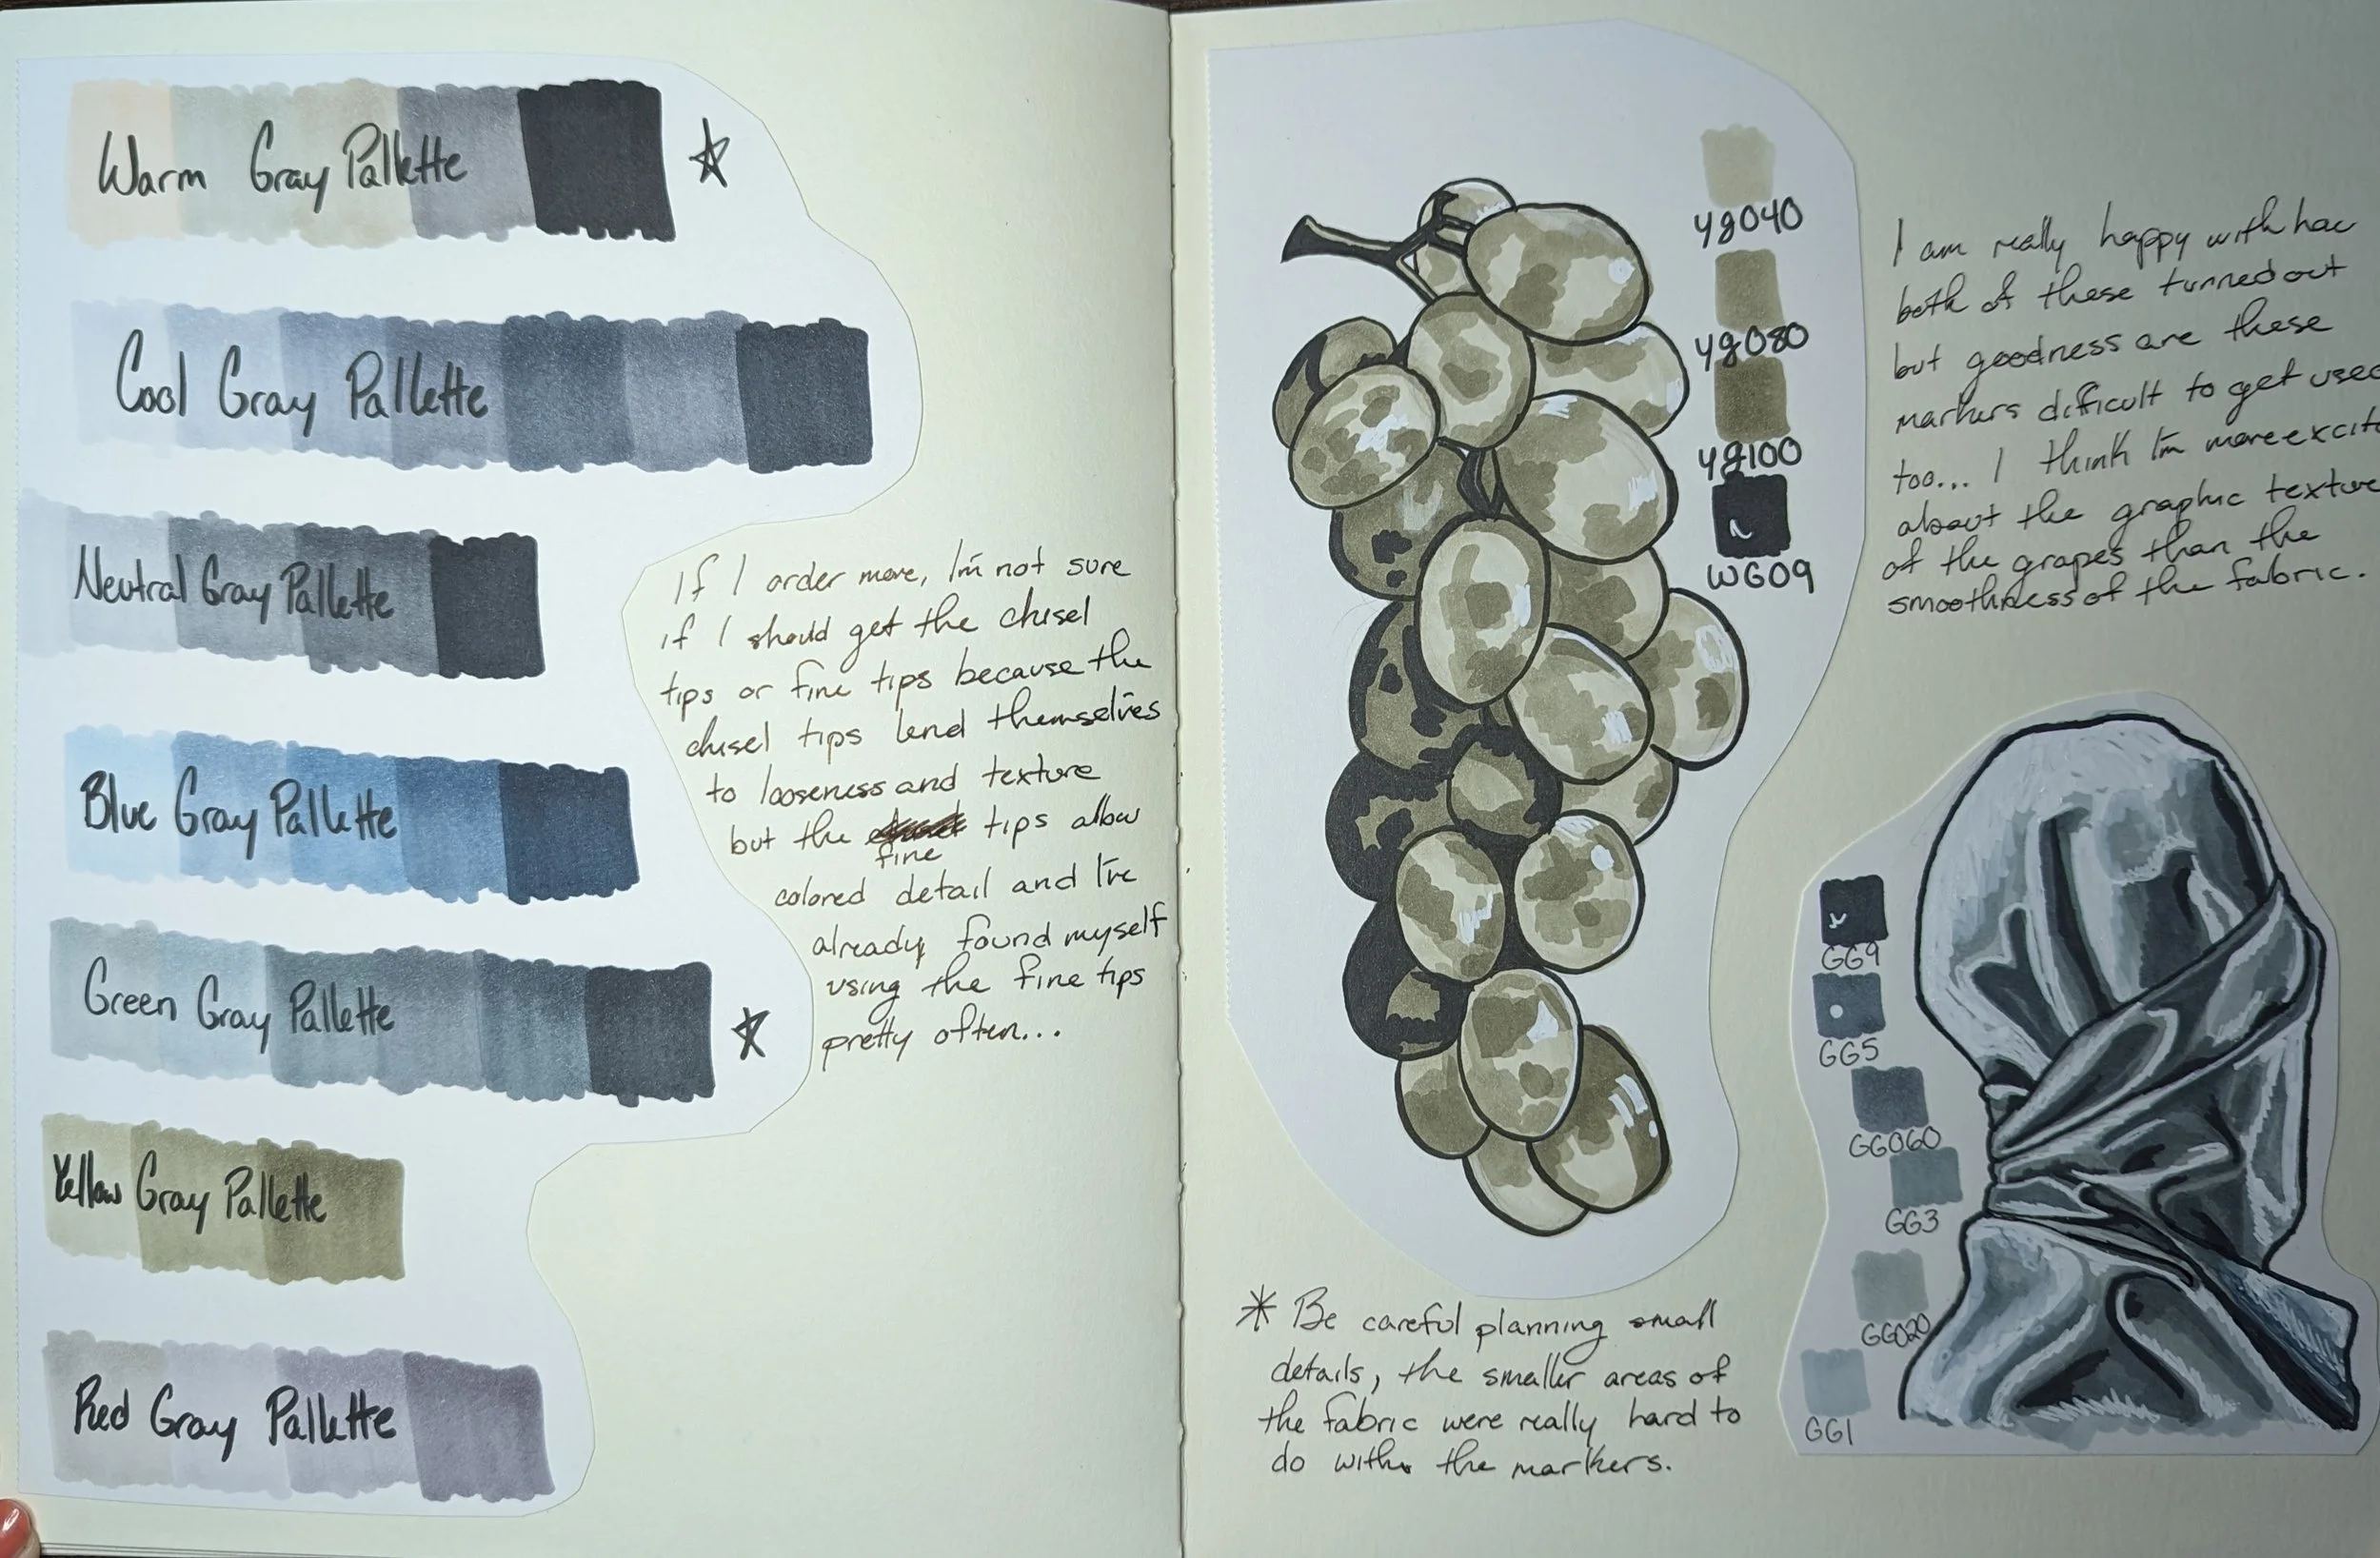 Warm Gray Pallette
Cool Gray Pallette
Neutral Gray Pallette
Blue Gray Pallette
Green Gray Pallette
Yellow Gray Pallette
Red Gray Pallette
If I order more, I'm not sure
if I should get the chisel
tips or fine tips because the
chisel tips lend themselves
to looseness and texture
but the tips allow
fine
colored detail and I've
already found myself
using the fine tips
pretty often...
yg040
yg080
yg100
WG09
I am really happy with how
both of these turned out
but goodness are these
markers difficult to get used
too... I think I'm more excit
about the graphic texture
of the grapes than the
smoothness of the fabric.
GG9
GG5
GG060
GG3
GG020
GG1
* Be careful planning small
details, the smaller areas of
the fabric were really hard to
do with the markers.